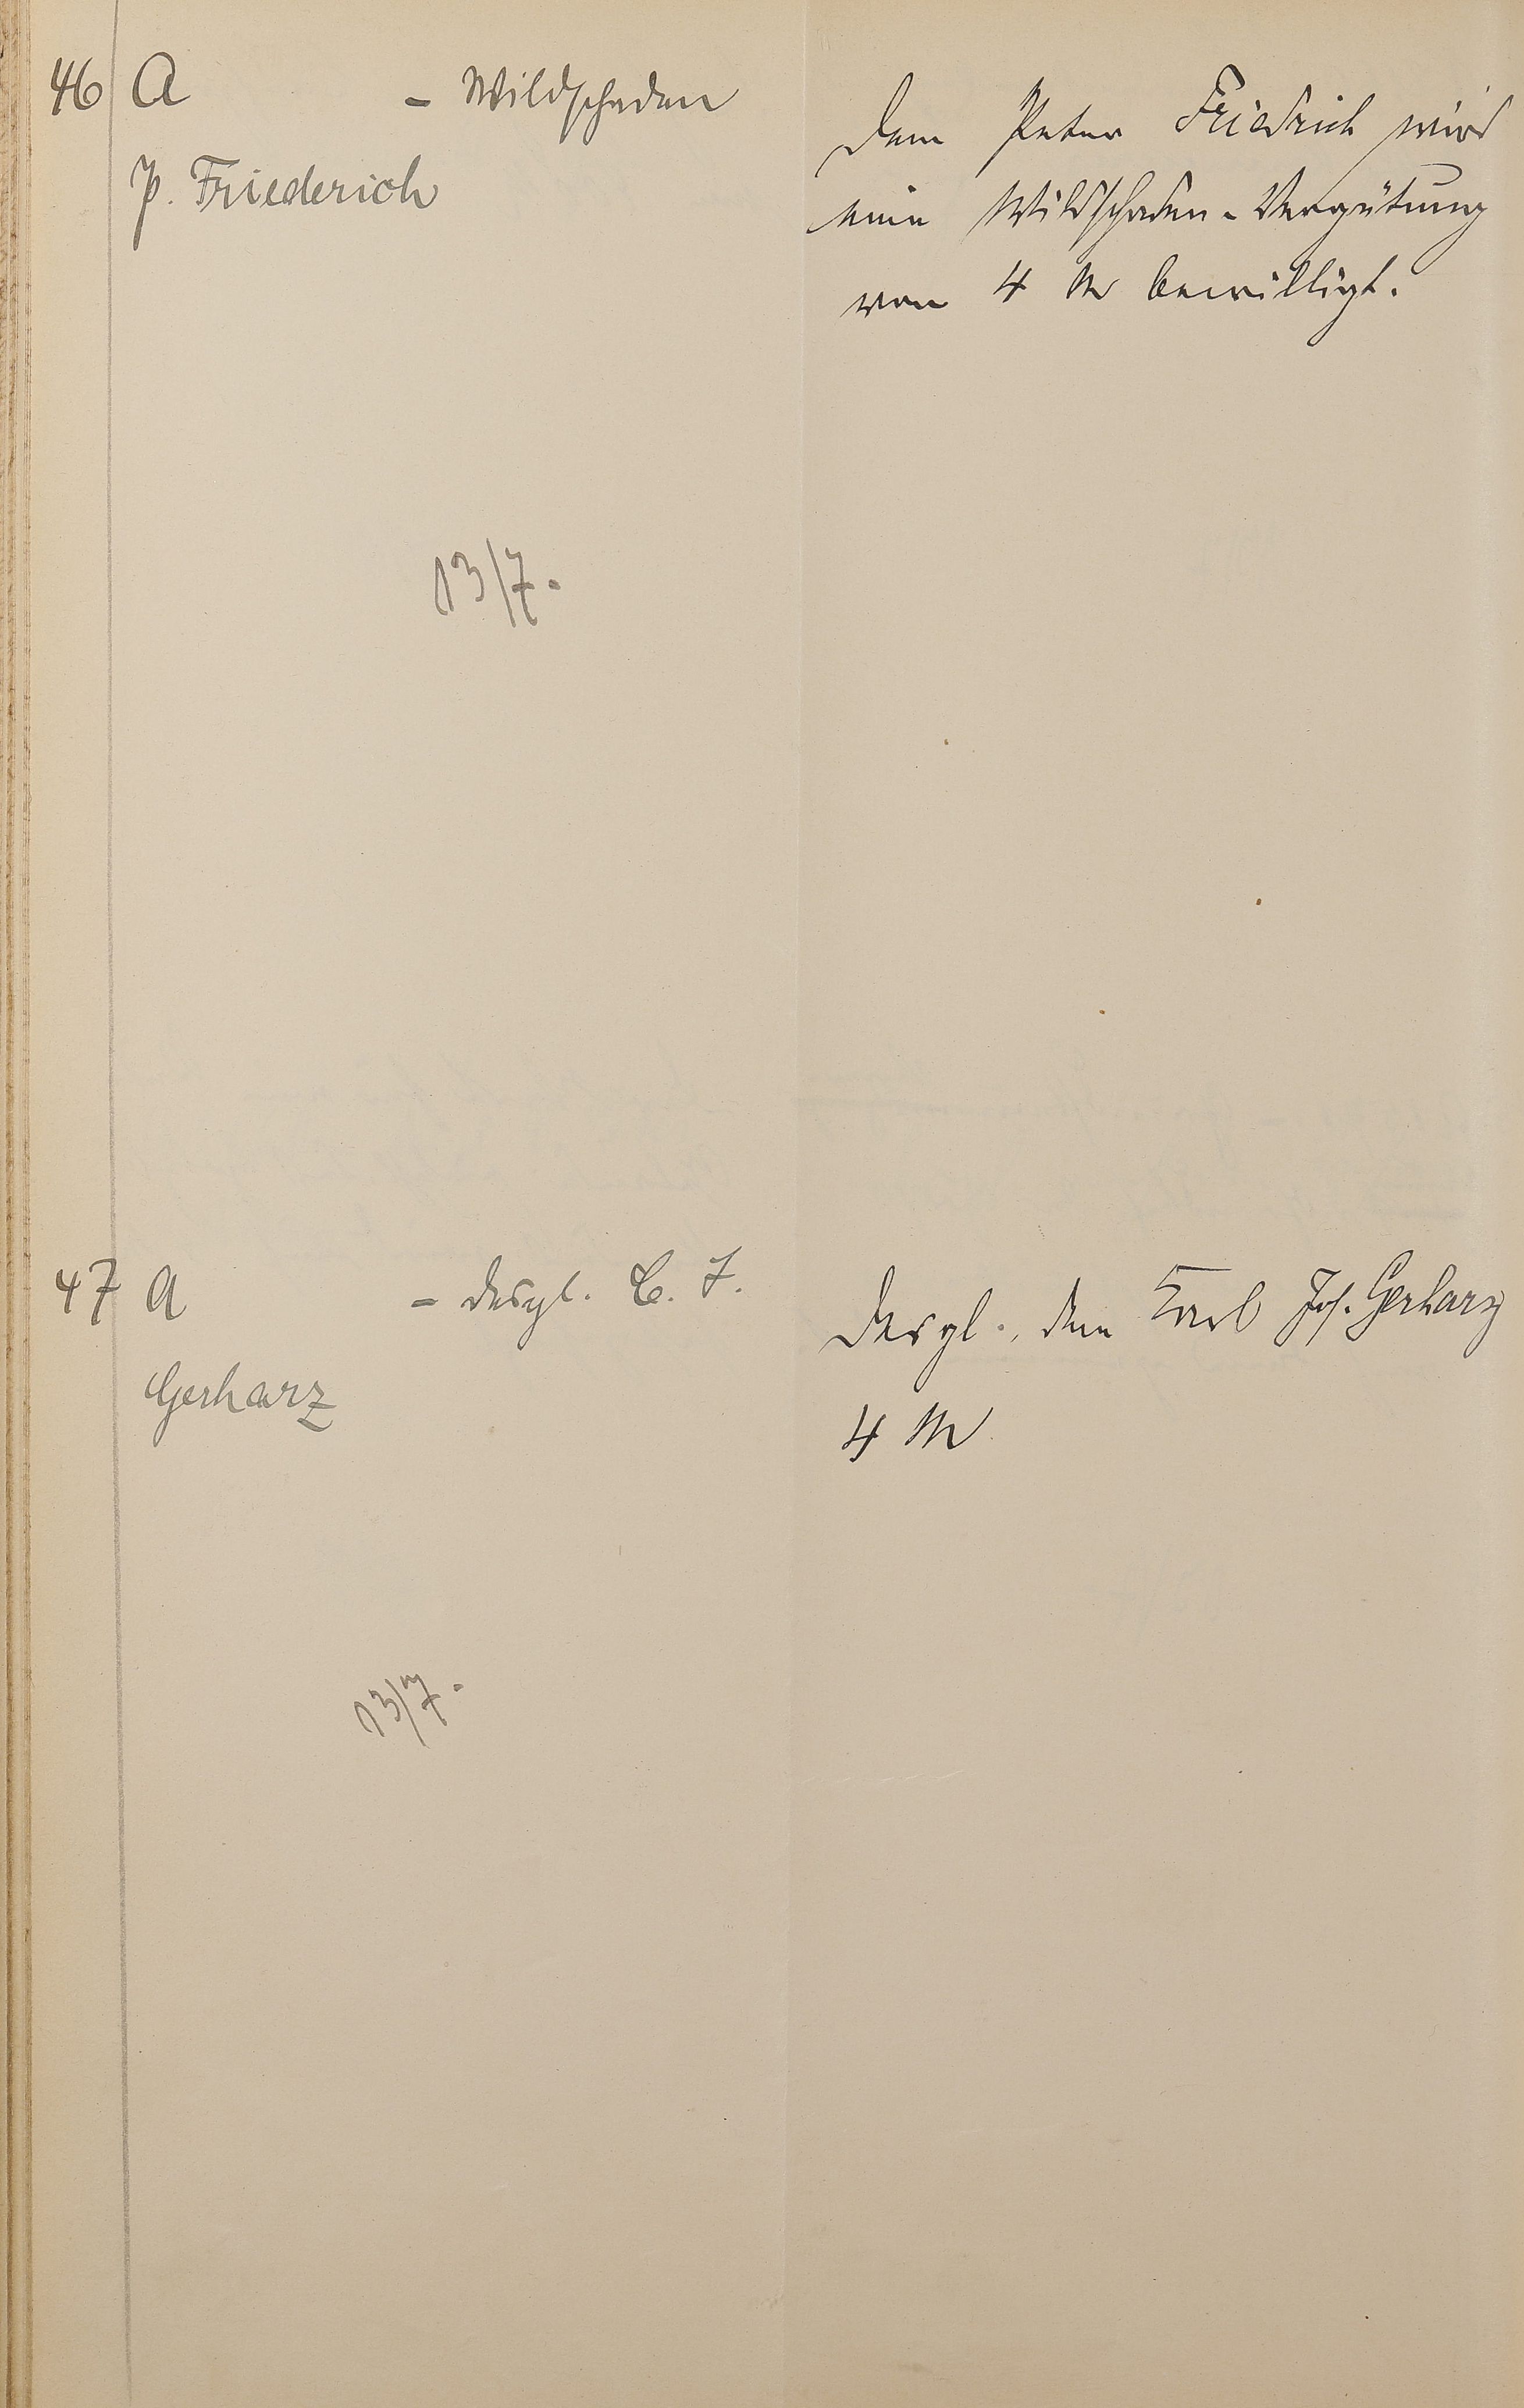 46 A - Wildschaden
P. Friederich
13/7.
Dem Peter Friedrich wird
eine Wildschaden-Vergütung
von 4 M bewilligt.
47 A - desgl. C. J.
Gerharz
13/7.
Desgl., dem Karl Jos. Gerharz
4 M